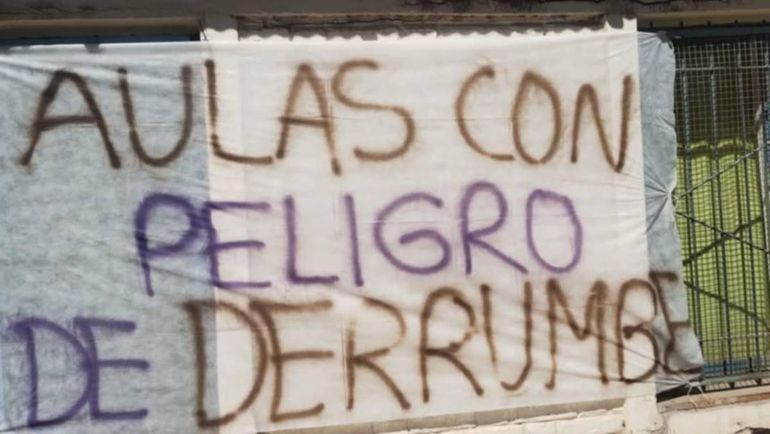 AULAS CON
PELIGRO
DE DERRUMBE